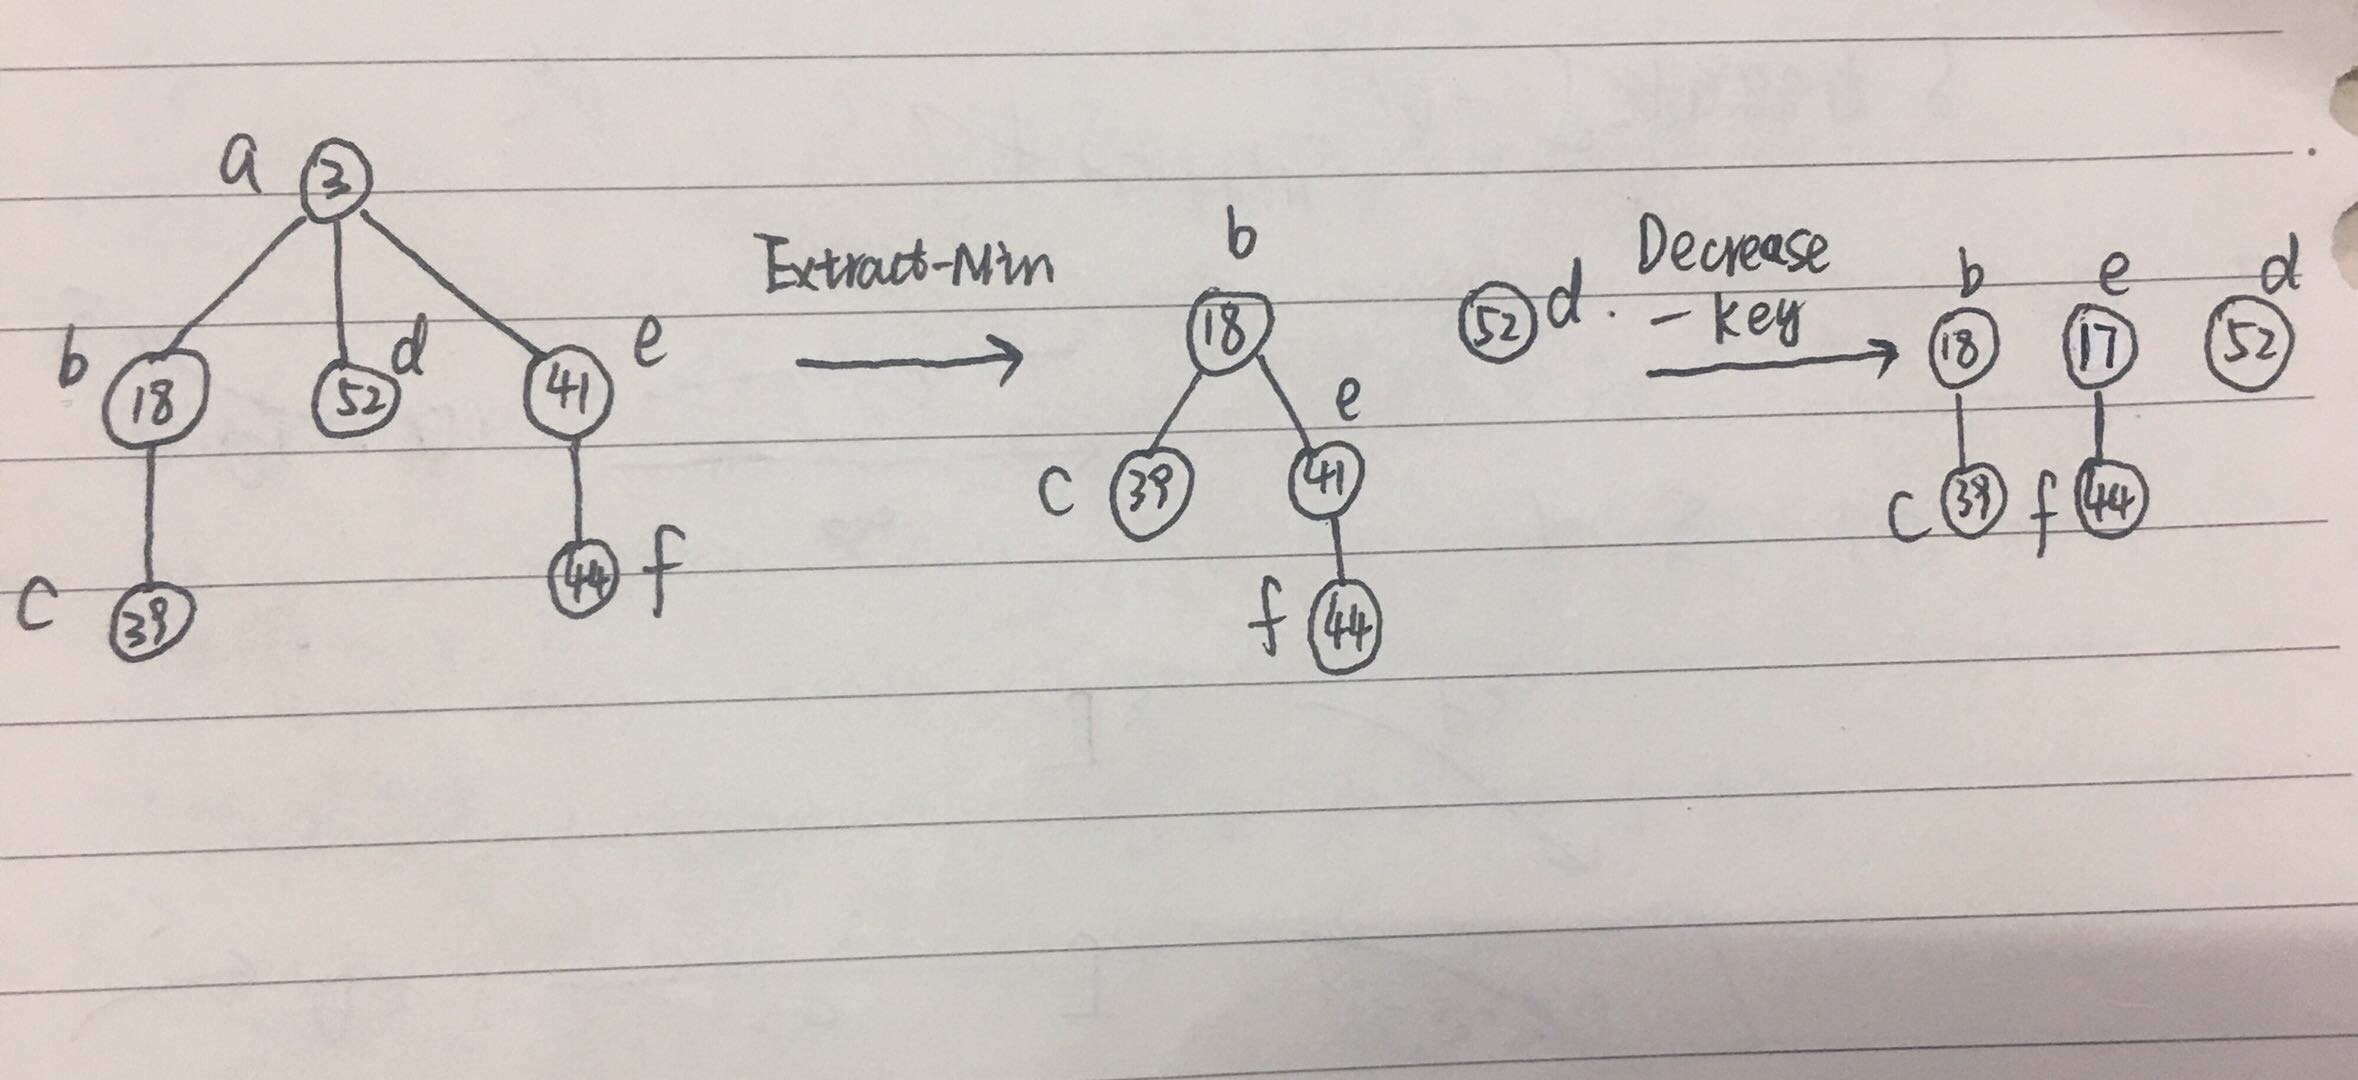 a 3
b 18 52 d 41 e
c 39 44 f
Extract-Min
b
18 52 d.
e
c 39 41
f 44
Decrease
- key
b e d
18 17 52
c 39 f 44